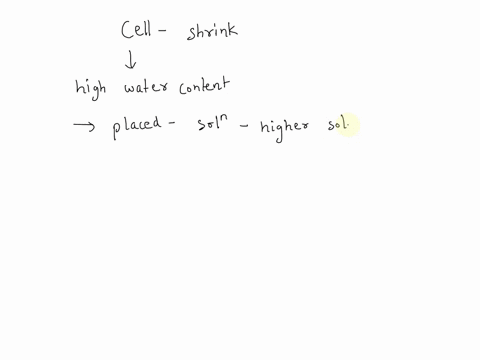 Cell - shrink
↓
high water content
→ placed - solⁿ - higher sol.